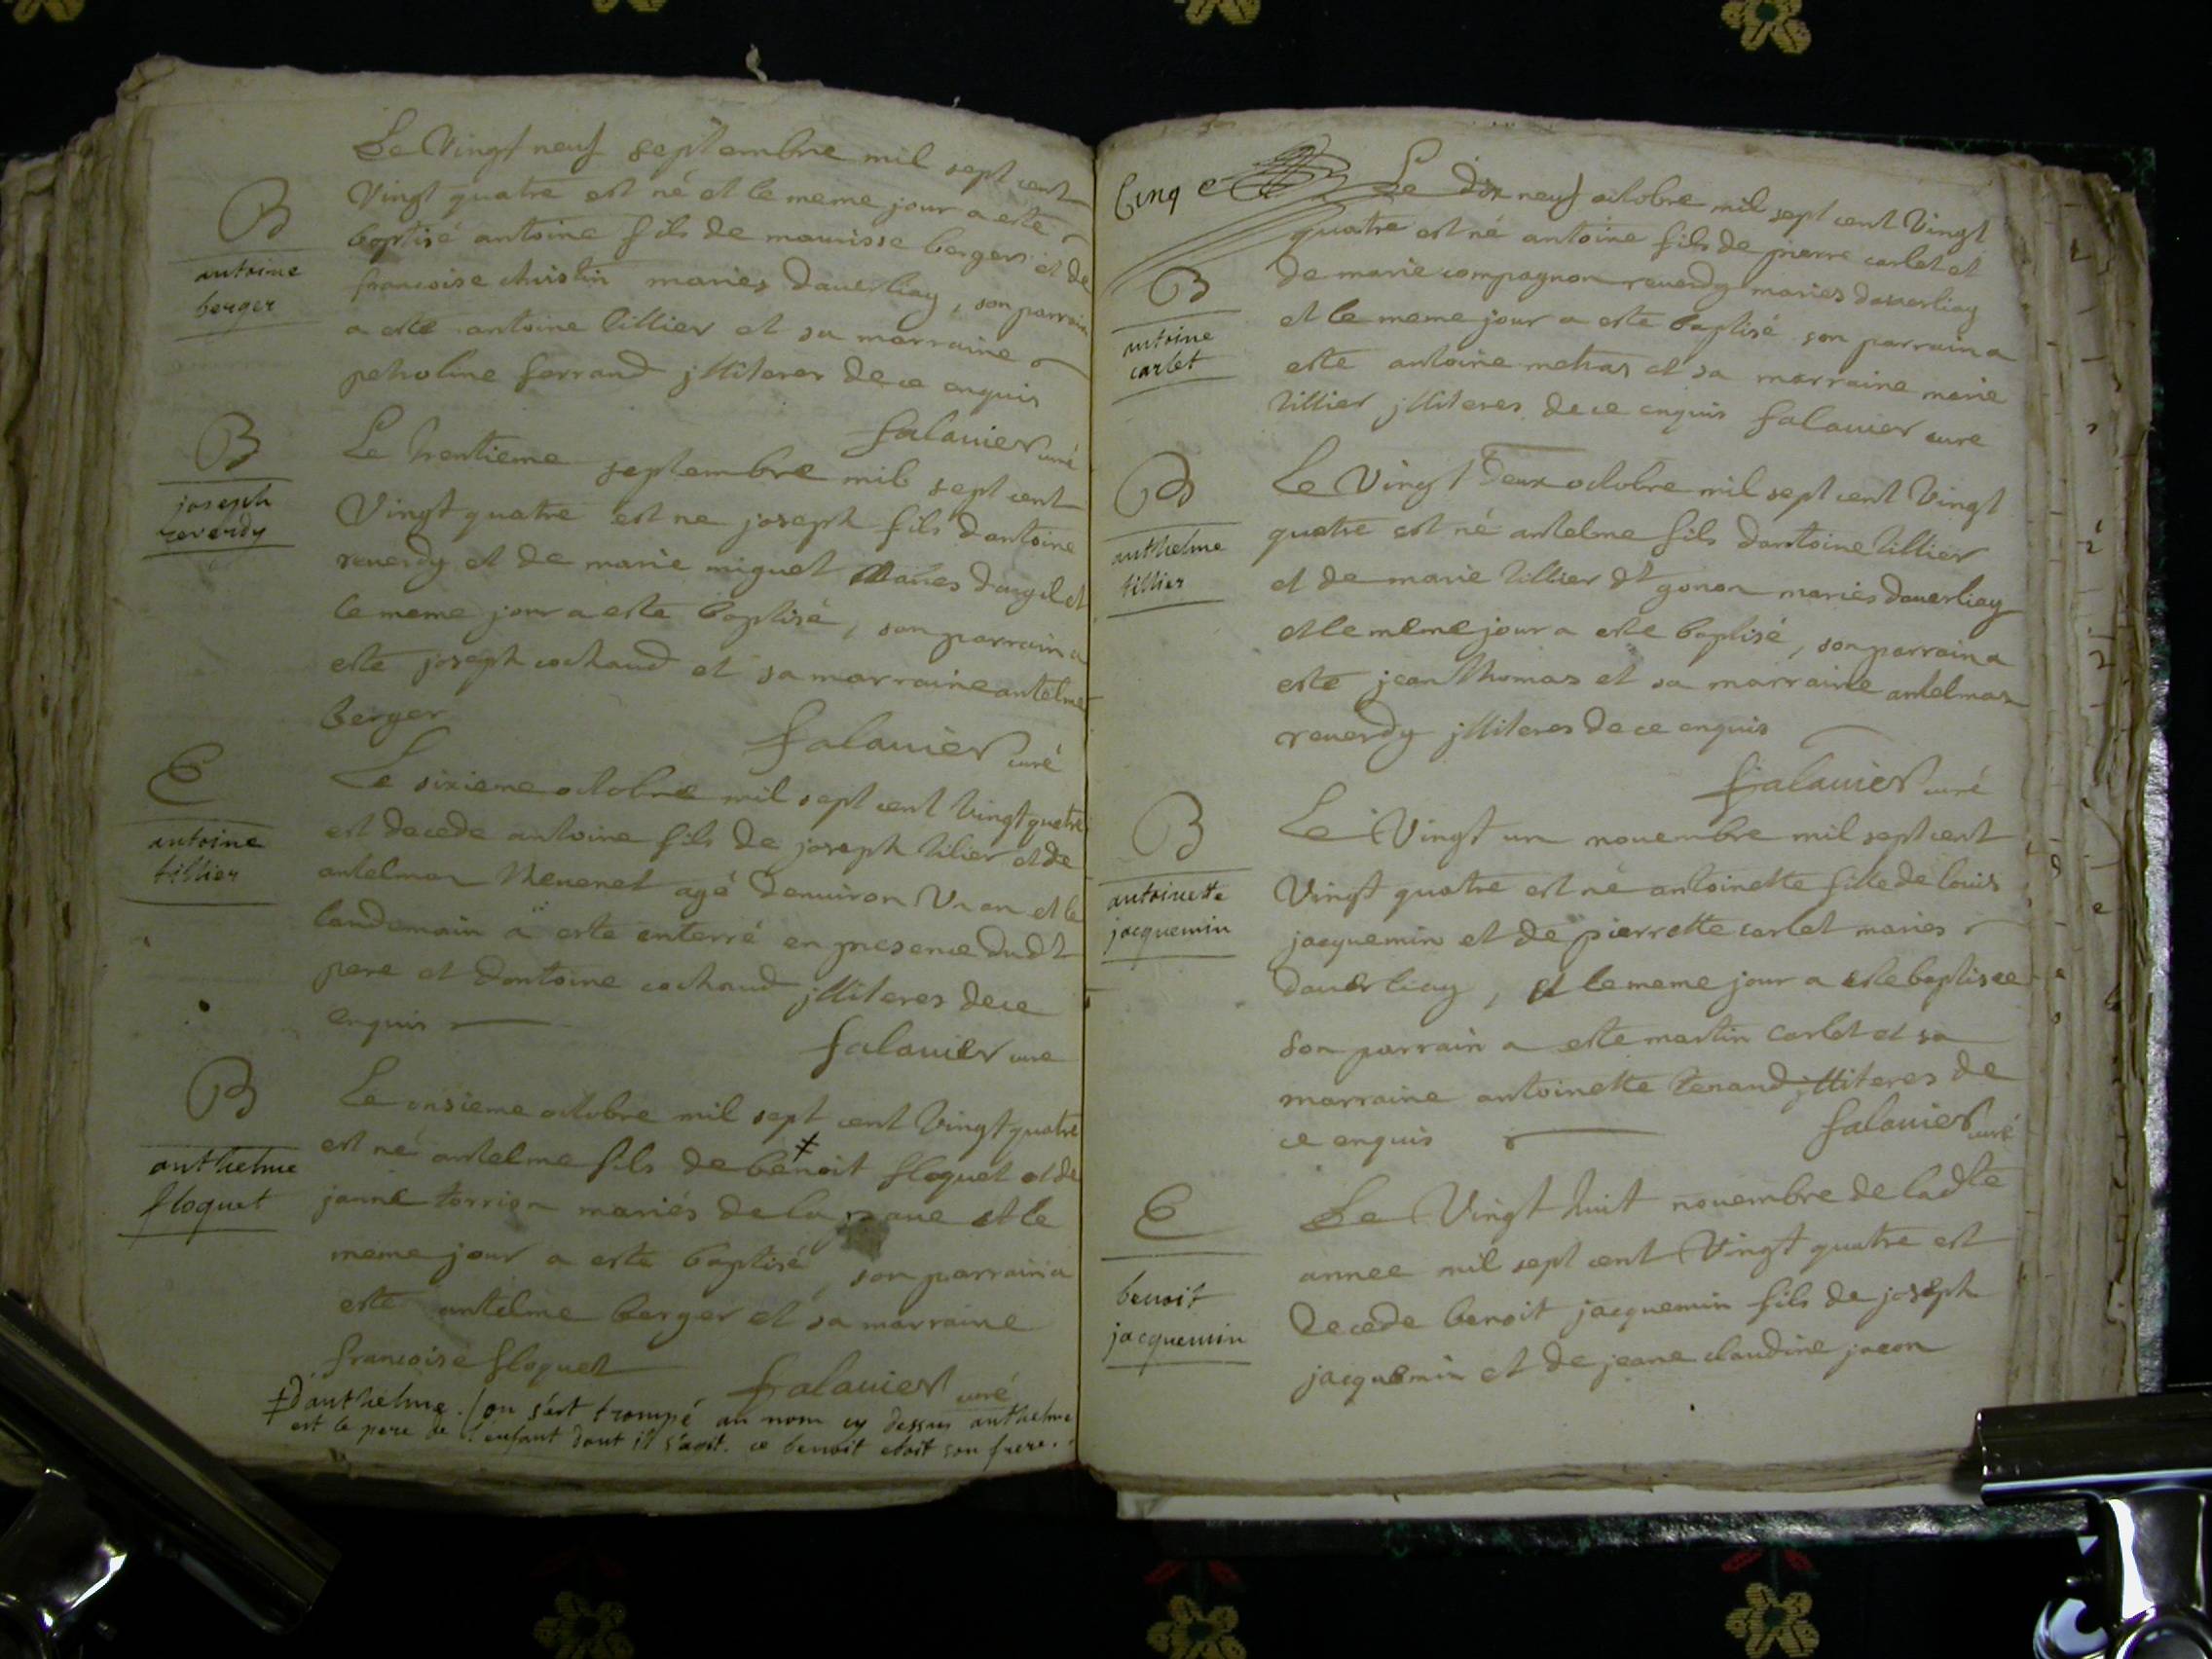 Le Vingt neuf septembre mil sept cent
Vingt quatre est né et le meme jour a esté
B
baptisé antoine fils de maurisse berger et de
antoine
berger
francoise christin mariés dauerliay, son parrain
a esté antoine tillier et sa marraine
petroline ferrand jlliteres de ce enquis
falauier curé
B
joseph
reverdy
Le trentieme septembre mil sept cent
Vingt quatre est ne joseph fils dantoine
reuerdy et de marie miguet Maries dargil et
le meme jour a esté baptisé, son parrain a
esté joseph cochaud et sa marraine antelme
berger
falauier curé
E
antoine
tillier
Le sixieme octobre mil sept cent Vingt quatre
est decede antoine fils de joseph tilier et de
antelmaz agé denuiron Vn an et le
landemain a esté enterré en presence dudt
pere et dantoine cochaud jlliteres de ce
enquis
falauier cure
B
anthelme
floquet
Le onsieme octobre mil sept cent Vingt quatre
est né antelme fils de benoit floquet et de
janne torrion mariés de la et le
meme jour a esté baptisé, son parrain a
esté antelme berger et sa marraine
francoise floquet
falauier curé
‡ d'anthelme. / on s'est trompé au nom cy dessus anthelme
est le pere de l'enfant dont il s'agit. ce benoit etoit son frere.
Cinq
Le dix neuf octobre mil sept cent Vingt
quatre est né antoine fils de pierre carlet et
B
antoine
carlet
de marie compagnon reuerdy mariés dauerliay
et le meme jour a esté baptisé son parrain a
esté antoine metras et sa marraine marie
tillier jlliteres de ce enquis falauier cure
B
anthelme
tillier
Le Vingt deux octobre mil sept cent Vingt
quatre est né antelme fils dantoine tillier
et de marie tillier dt gonon mariés dauerliay
et le meme jour a esté baptisé, son parrain a
esté jean thomas et sa marraine antelmaz
reuerdy jlliteres de ce enquis
falauier curé
B
antoinette
jacquemin
Le Vingt un nouembre mil sept cent
Vingt quatre est né antoinette fille de louis
jacquemin et de pierrette carlet maries
dauerliay, et le meme jour a esté baptisee
son parrain a esté martin carlet et sa
marraine antoinette tenand jlliteres de
ce enquis
falauier curé
E
benoit
jacquemin
Le Vingt huit nouembre de ladte
annee mil sept cent Vingt quatre est
decede benoit jacquemin fils de joseph
jacquemin et de jeane claudine jacon